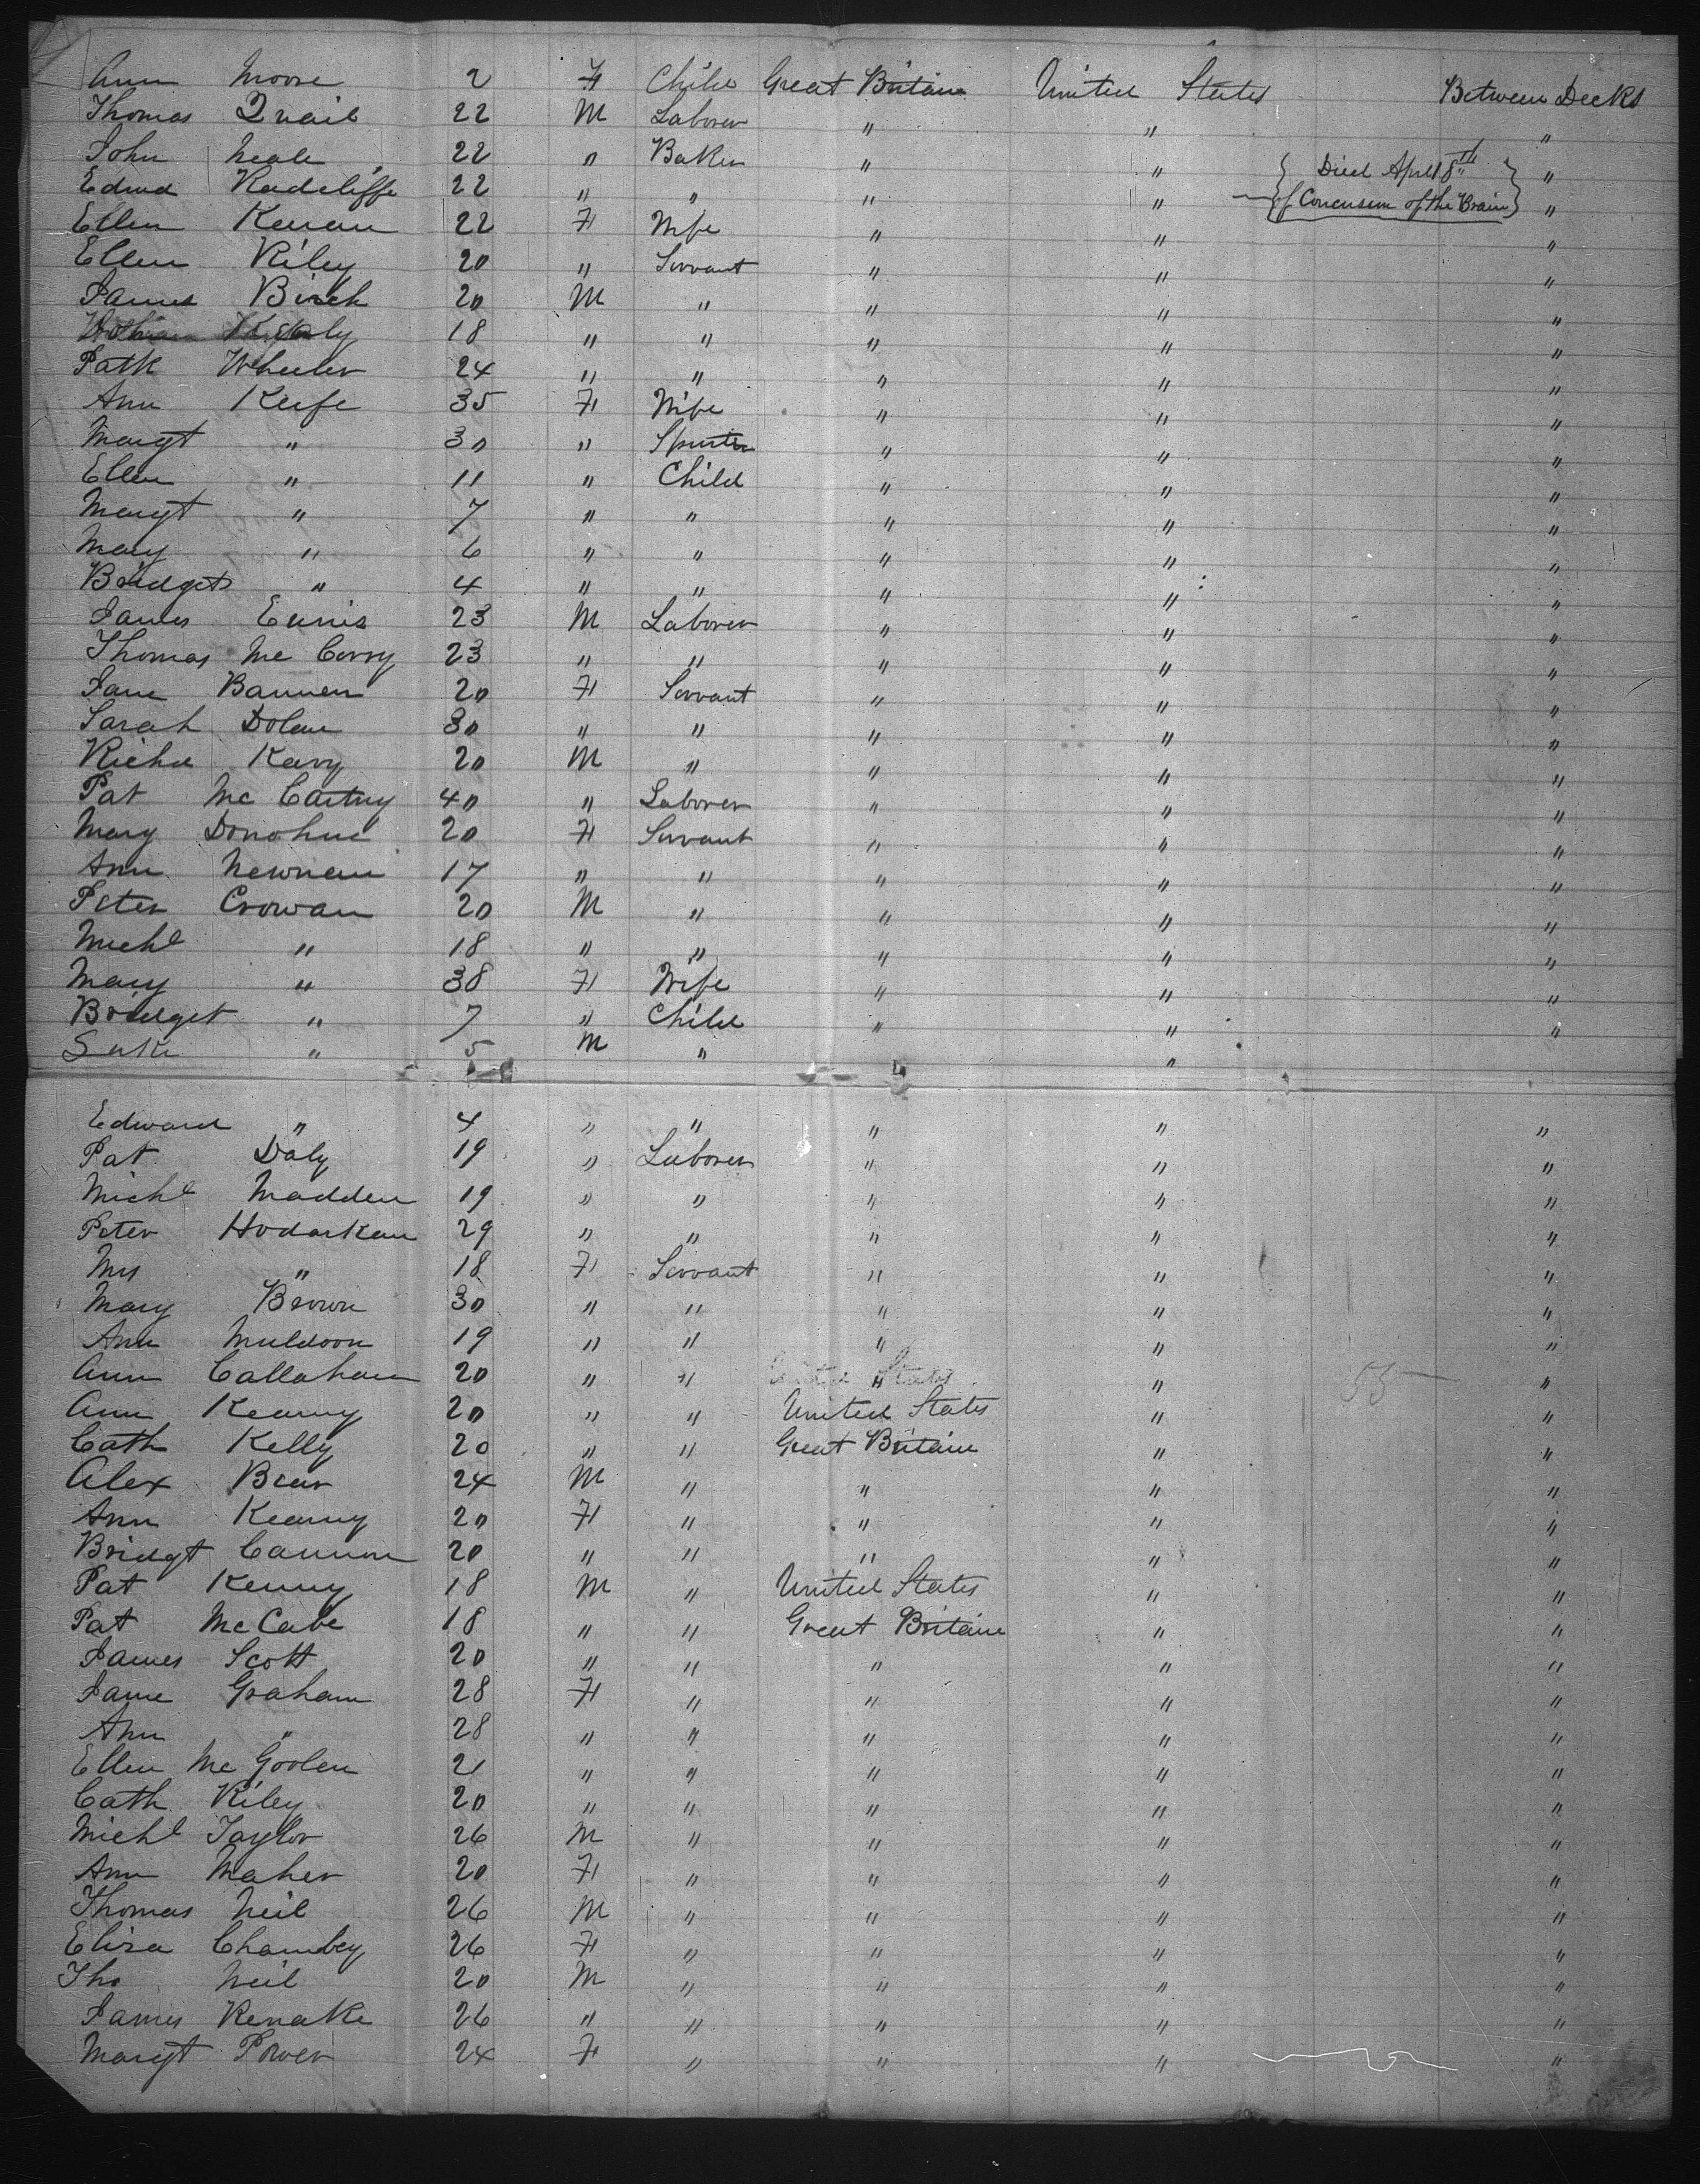 Ann Moore 2 F Child Great Britain United States Between Decks
Thomas Quail 22 M Laborer " " "
John Neale 22 " Baker " " { Died April 8th } "
Edwd Radcliffe 22 " " " " { of Concusion of the Brain } "
Ellen Keenan 22 F Wife " " "
Ellen Riley 20 " Servant " " "
James Birch 20 M " " " "
18 " " " " "
Patk Wheeler 24 " " " " "
Ann Keefe 35 F Wife " " "
Margt " 30 " Spinster " " "
Ellen " 11 " Child " " "
Margt " 7 " " " " "
Mary " 6 " " " " "
Bridget " 4 " " " " "
James Ennis 23 M Laborer " " "
Thomas Mc Corry 23 " " " " "
Jane Bannen 20 F Servant " " "
Sarah Dolan 30 " " " " "
Richd Kavy 20 M " " " "
Pat Mc Cartney 40 " Laborer " " "
Mary Donohue 20 F Servant " " "
Ann Newnan 17 " " " " "
Peter Crowan 20 M " " " "
Michl " 18 " " " " "
Mary " 38 F Wife " " "
Bridget " 7 " Child " " "
Luke " 5 M " "
Edward " 4 " " " " "
Pat Daly 19 " Laborer " " "
Michl Madden 19 " " " " "
Peter Hodarkan 29 " " " " "
Mrs " 18 F Servant " " "
Mary Brown 30 " " " " "
Ann Muldoon 19 " " " " "
Ann Callahan 20 " " " " 55 "
Ann Kearny 20 " " United States " "
Cath Kelly 20 " " Great Britain " "
Alex Bear 24 M " " " "
Ann Kearny 20 F " " " "
Bridgt Cannon 20 " " " " "
Pat Kenny 18 M " United States " "
Pat McCabe 18 " " Great Britain " "
James Scott 20 " " " " "
Jane Graham 28 F " " " "
Ann " 28 " " " " "
Ellen Mc Goolen 21 " " " " "
Cath Riley 20 " " " " "
Michl Taylor 26 M " " " "
Ann Maher 20 F " " " "
Thomas Neil 26 M " " " "
Eliza Chambey 26 F " " " "
Tho Neil 20 M " " " "
James Renake 26 " " " " "
Margt Power 24 F " " " "